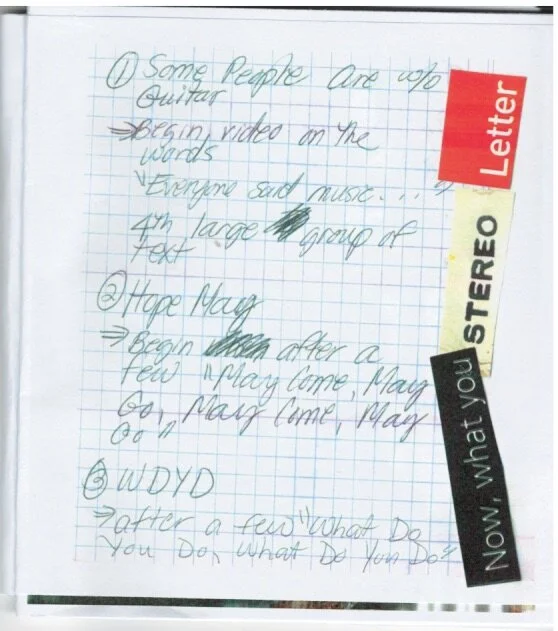 ① Some People are w/o
Guitar
⇒ Begin video on the
words
"Everyone said music....."
4th large group of
text
② Hope May
⇒ Begin after a
few "May Come, May
Go, May Come, May
Go"
③ WDYD
⇒ after a few "What Do
You Do, What Do You Do"
Letter
STEREO
Now, what you